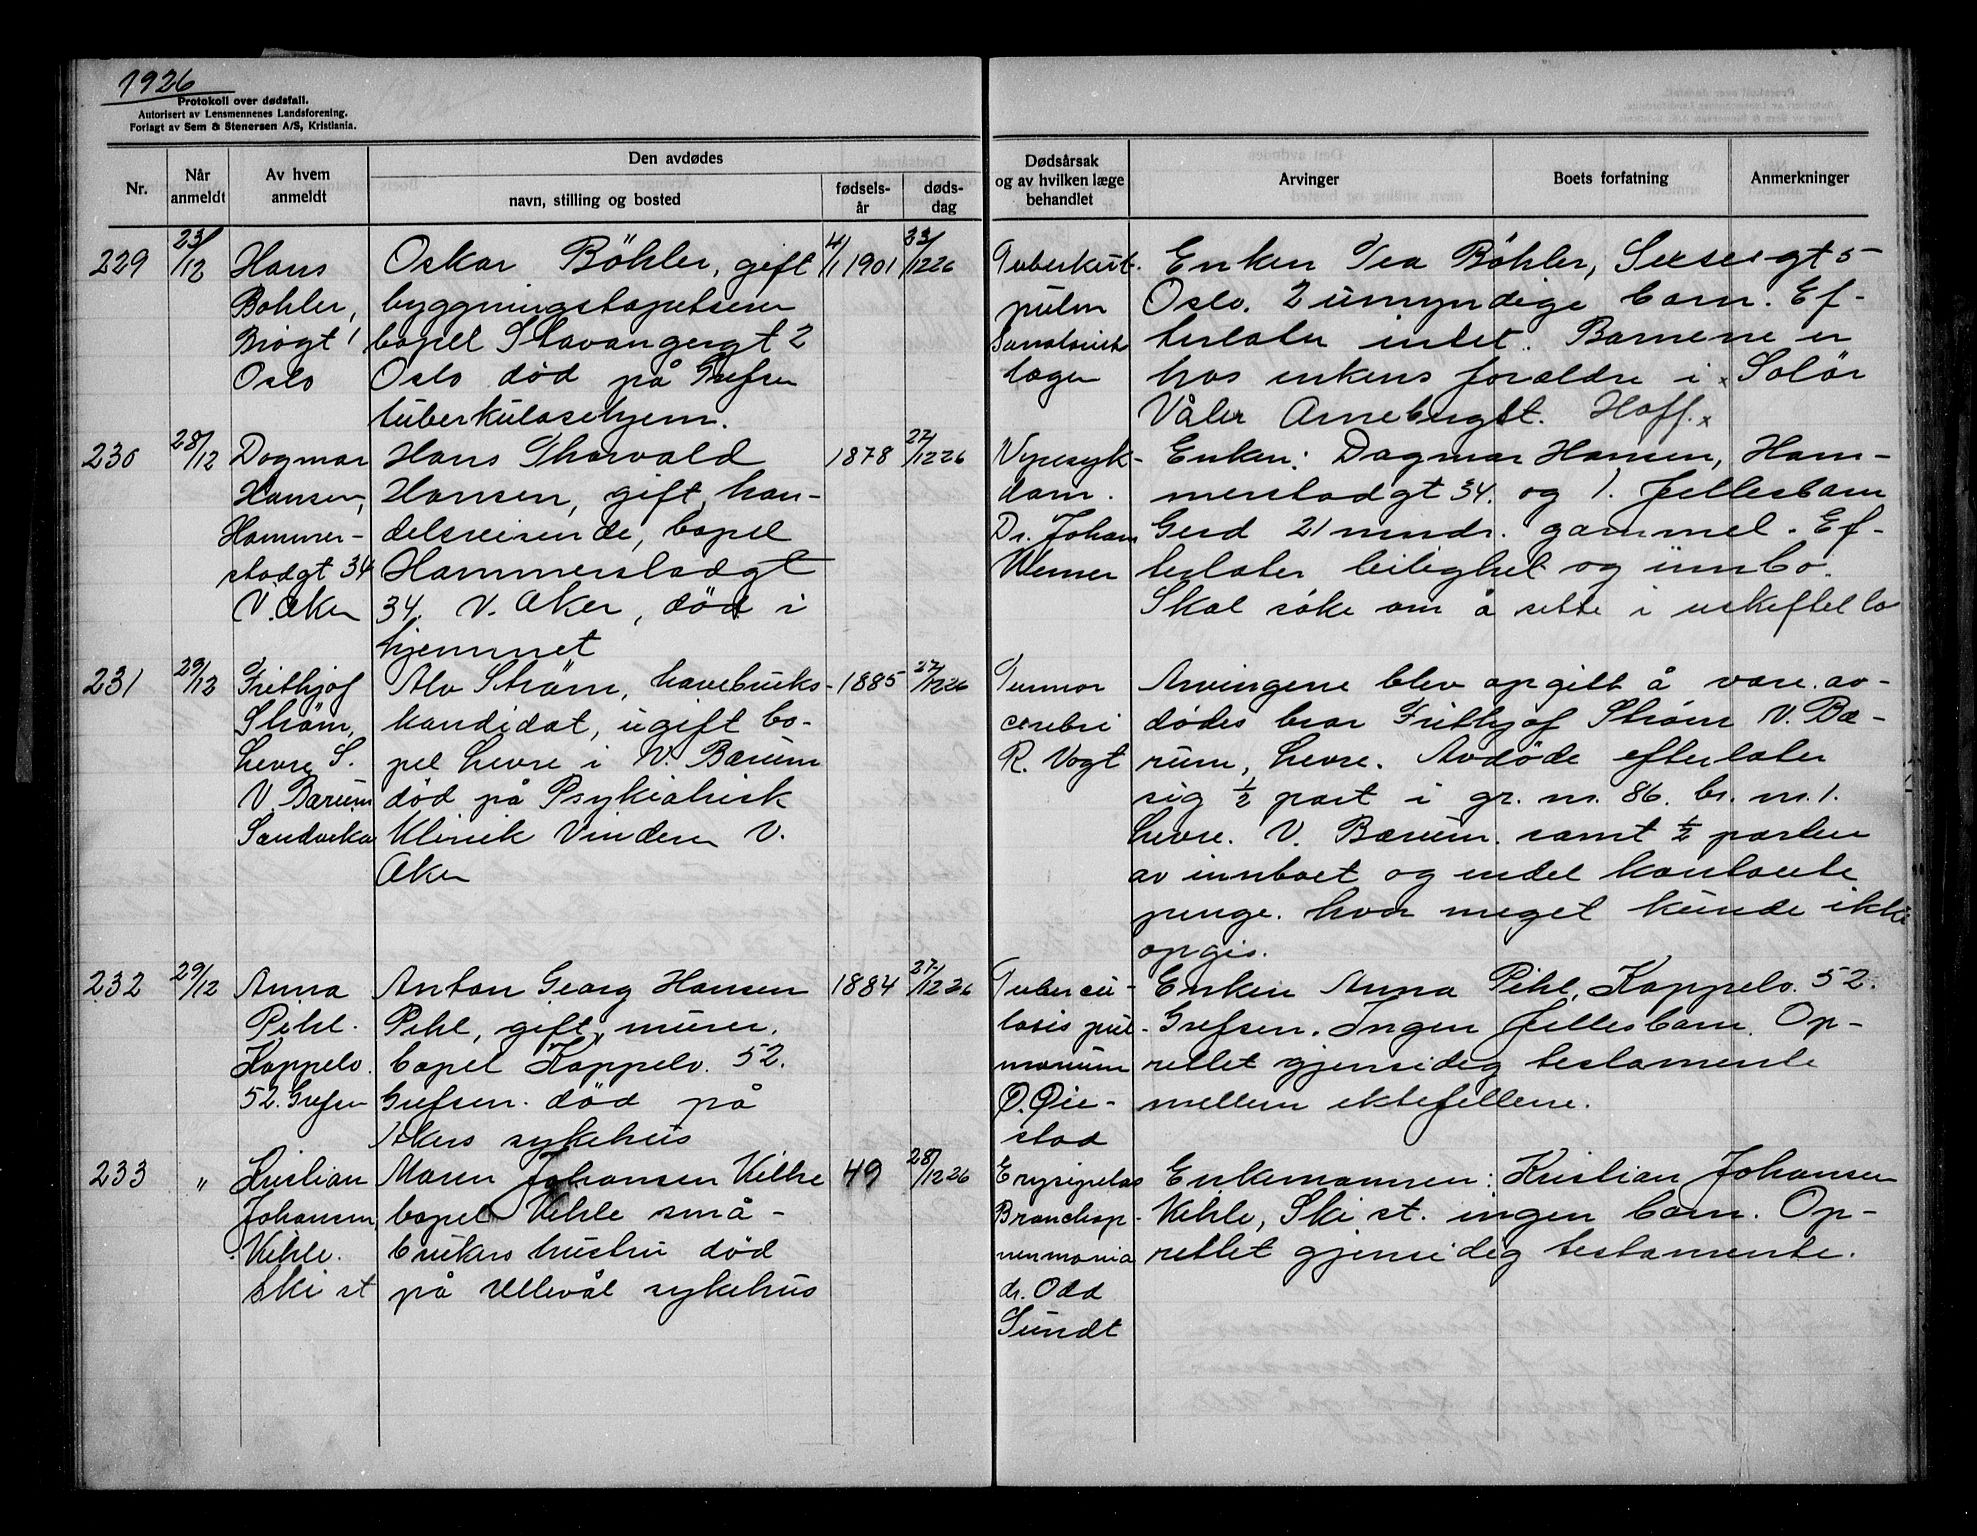 1926
Protokoll over dødsfall.
Autorisert av Lensmennenes Landsforening.
Forlagt av Sem & Stenersen A/S, Kristiania.
Nr.
Når anmeldt
Av hvem anmeldt
Den avdødes
navn, stilling og bosted
fødsels-år
døds-dag
Dødsårsak og av hvilken læge behandlet
Arvinger
Boets forfatning
Anmerkninger
229
23/12
Hans
Bøhler,
Oslo
Oskar Böhler, gift
byggningstapetserer
bopel Stavangergt 2
Oslo död på Grefsen
tuberkulosehjem.
4/1 1901
23/12 26
Tuberkul.
pulm
Sanatorie
lægen
Enken Tea Böhler, 5
Oslo. 2 umyndige barn. Ef-
terlater intet. Barnene er
hos enkens forældre i x Solör
Våler Arneberget. Hoff. x
230
28/12
Dagmar
Hansen,
Hammer-
stadgt 34
V. Aker
Hans Thorvald
Hansen, gift, han-
delsreisende, bopel
Hammerstadgt
34. V. Aker, död i
hjemmet
1878
27/12 26
Nyresyk-
dom.
Dr. Johan
Werner
Enken: Dagmar Hansen, Ham-
merstadgt 34. og 1. fellesbarn
Gerd 21 mndr. gammel. Ef-
terlater leilighet og innbo.
Skal söke om å sitte i uskiftet bo
231
29/12
Frithjof
Ström,
Levre S.
V. Bærum
Sandvika
Alv Ström, havebruks-
kandidat, ugift bo-
pel Levre i V. Bærum
död på Psykiatrisk
Klinik Vinderen V.
Aker
1885
27/12 26
Tumor
cerebri
R. Vogt
Arvingene blev opgitt å være av-
dödes bror Frithjof Ström V. Bæ-
rum, Levre. Avdöde efterlater
sig ½ part i gr. nr. 86. br. nr. 1.
Levre. V. Bærum. samt ½ parten
av innboet og endel kontante
penge. hvor meget kunde ikke
opgis.
232
29/12
Anna
Pihl.
Kappelv.
52. Grefsen
Anton Georg Hansen
Pihl, gift, murer.
bopel Kappelv. 52.
Grefsen. död på
Akers sykehus
1884
27/12 26
Tubercu-
losis pul-
monum
O. Øie-
stad
Enken Anna Pihl, Kappelv. 52.
Grefsen. Ingen fellesbarn. Op-
rettet gjensidig testamente
mellem ektefellene.
233
"
Kristian
Johansen
Vehle.
Ski st
Maren Johansen Vehle
bopel Vehle små-
brukers hustru död
på Ullevål sykehus
49
28/12 26
Erysipelas
Bronchop-
neumonia
dr. Odd
Sundt
Enkemannen: Kristian Johansen
Vehle, Ski st. ingen barn. Op-
rettet gjensidig testamente.